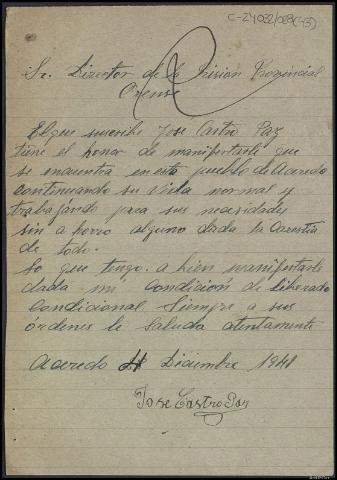 C-24032/028(43)
Sr. Director de la Prision Provincial
Orense
El que suscribe Jose Castro Paz
tiene el honor de manifestarle que
se encuentra en este pueblo de Acevedo
continuando su vida normal y
trabajando para sus necesidades
sin a horro alguno dada la carestia
de todo.
Lo que tengo a bien manifestarle
dada mi condición de liberado
condicional siempre a sus
órdenes le saluda atentamente
Acevedo Diciembre 1941
Jose Castro Paz